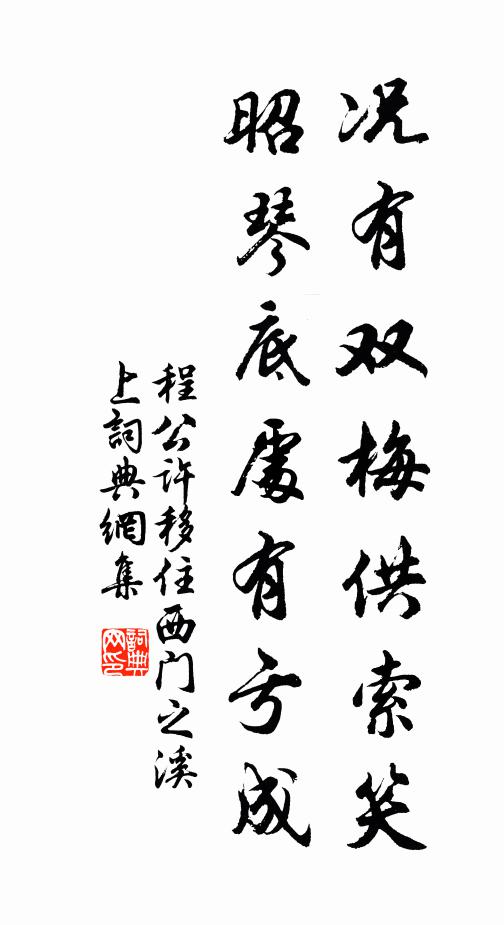 况有双梅供索笑
昭琴底處有亏成
程公許移住西门之溪
上詞典網集
詞典网印